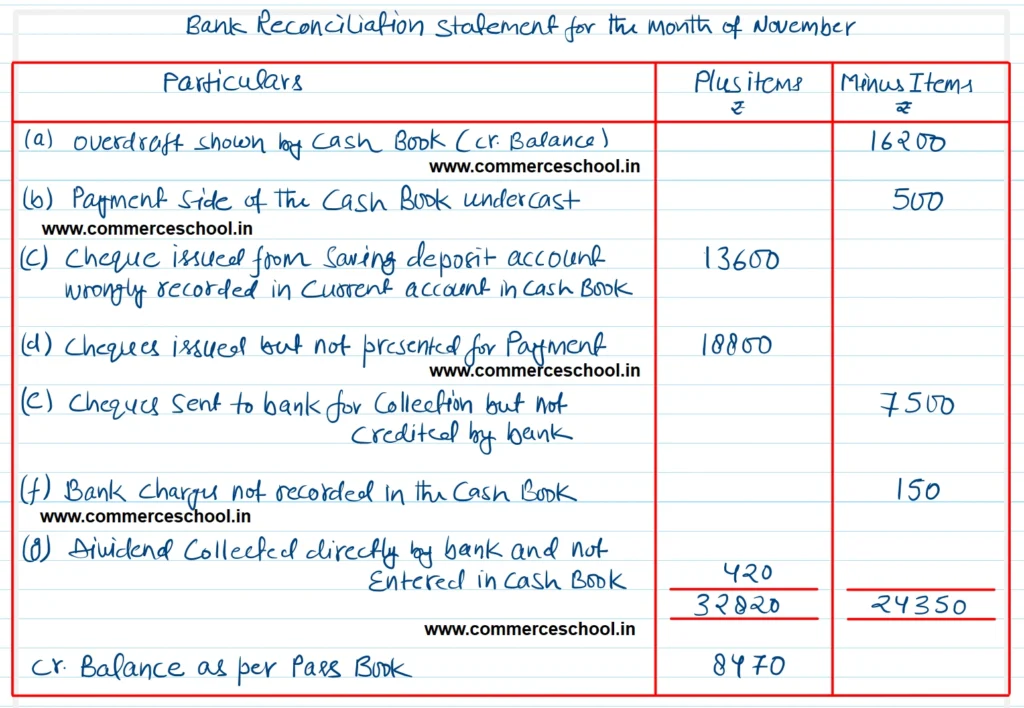 Bank Reconciliation Statement for the Month of November
Particulars Plus items Minus Items
₹ ₹
(a) Overdraft shown by Cash Book (Cr. Balance) 16200
www.commerceschool.in
(b) Payment side of the Cash Book undercast 500
www.commerceschool.in
(c) Cheque issued from Saving deposit account 13600
wrongly recorded in Current account in Cash Book
(d) Cheques issued but not presented for Payment 18800
www.commerceschool.in
(e) Cheques Sent to bank for Collection but not 7500
Credited by bank
(f) Bank Charges not recorded in the Cash Book 150
www.commerceschool.in
(g) Dividend Collected directly by bank and not
Entered in Cash Book 420
32820 24350
www.commerceschool.in
Cr. Balance as per Pass Book 8470